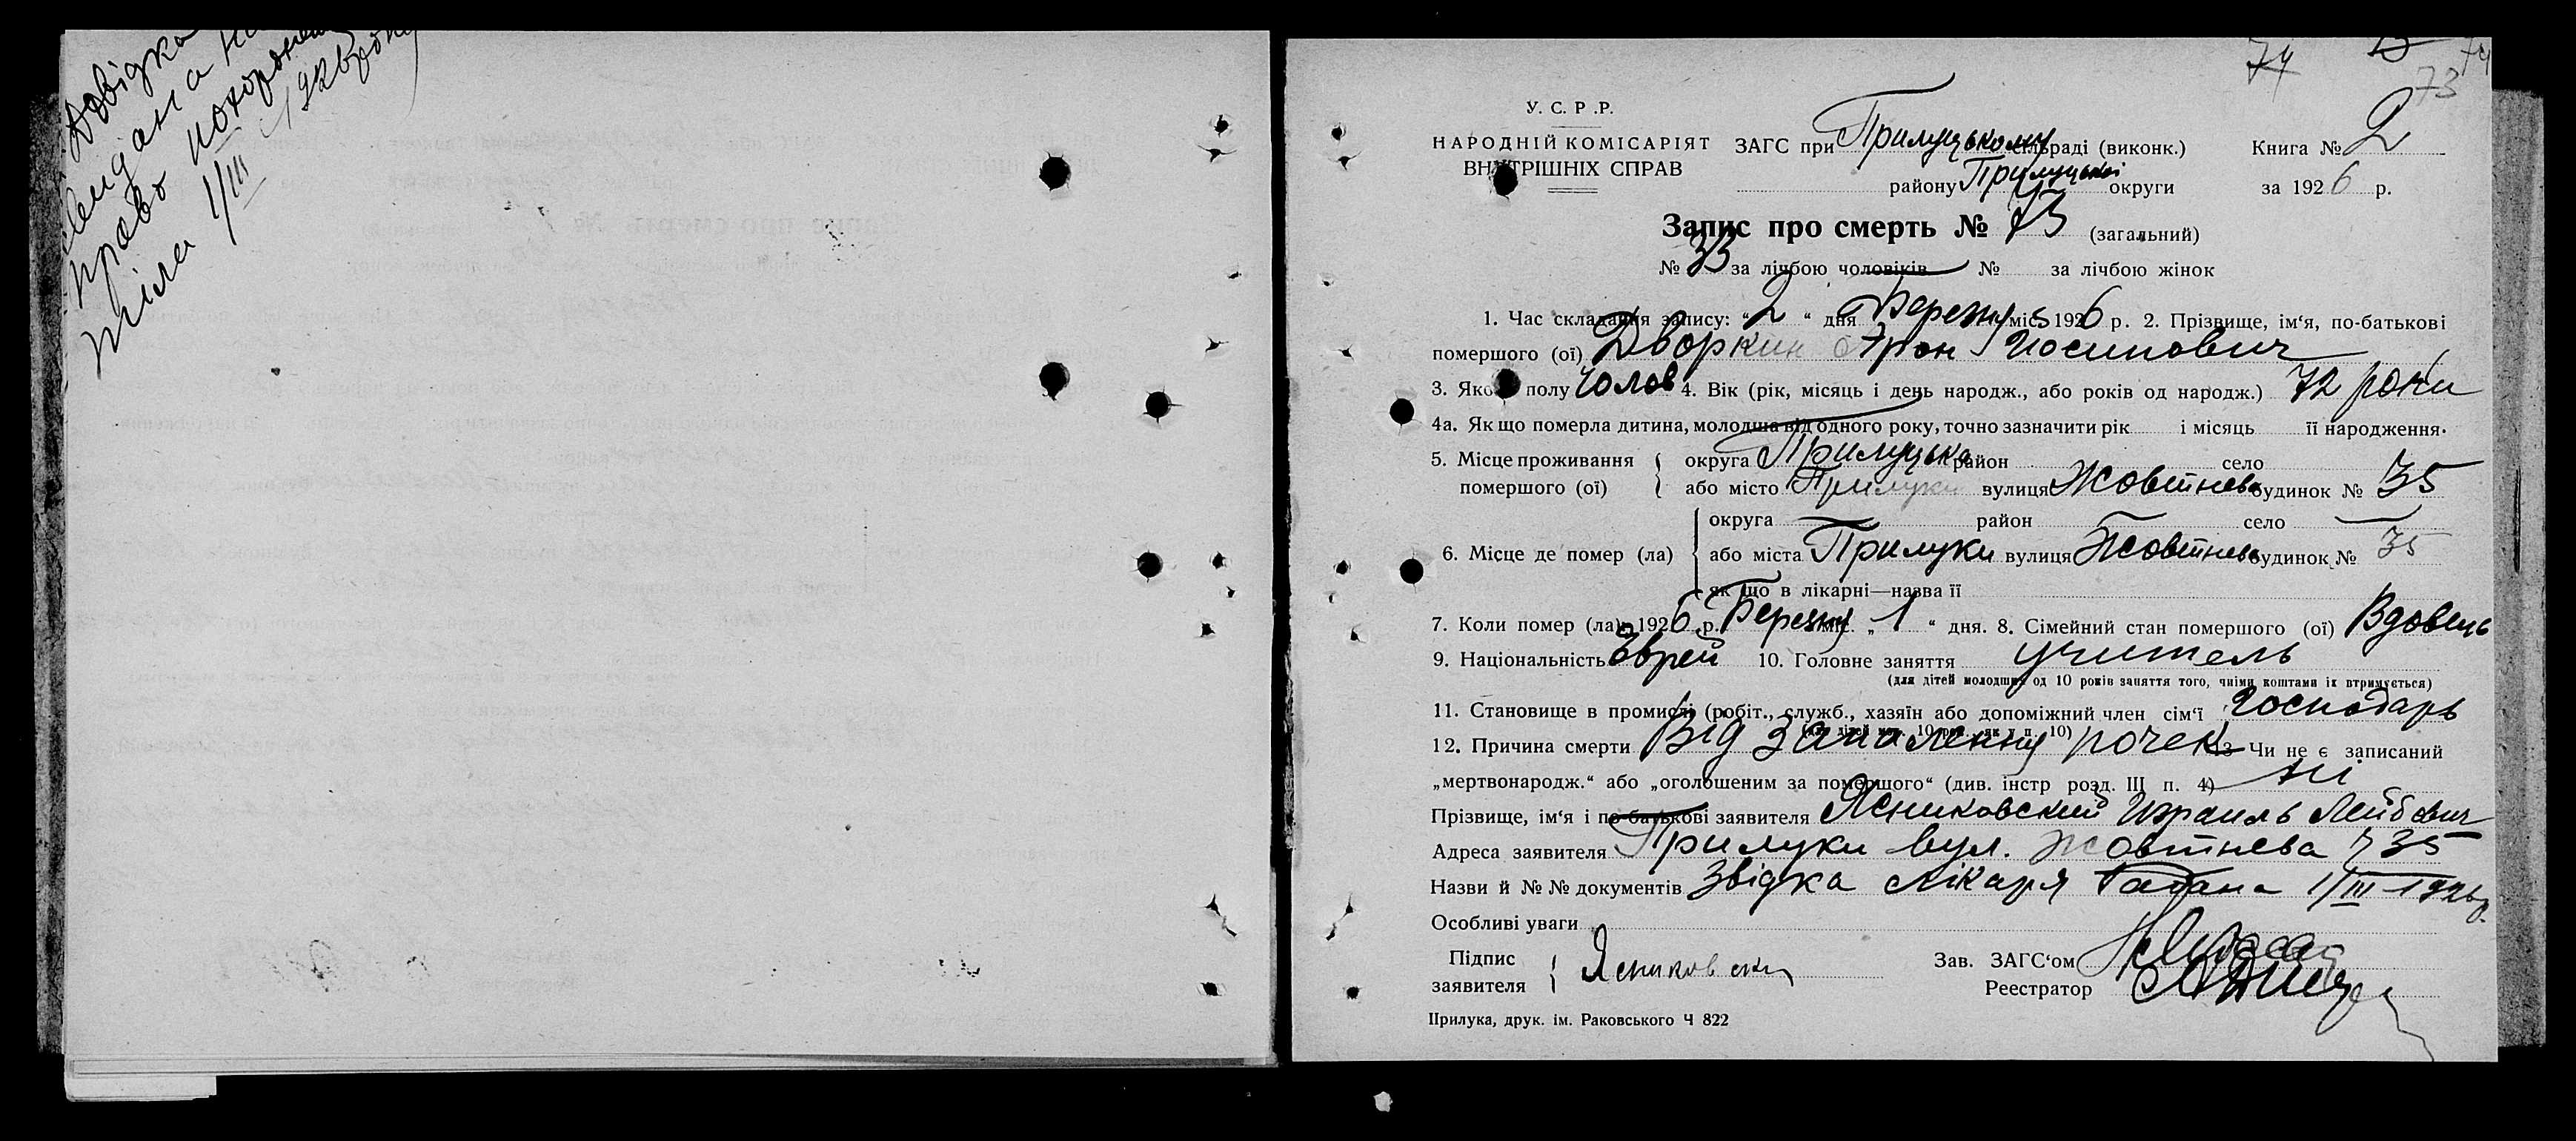 Довідка
видана на
право похоронення
тіла 1/III 192
74 73
У. С. Р. Р.
НАРОДНІЙ КОМІСАРІЯТ
ВНУТРІШНІХ СПРАВ
ЗАГС при Прилуцькому сільраді (виконк.) Книга № 2
району Прилуцької округи за 1926 р.
Запис про смерть № 73 (загальний)
№ 33 за лічбою чоловіків № за лічбою жінок
1. Час складання запису: “ 2 “ дня Березня міс. 1926 р. 2. Прізвище, ім‘я, по-батькові
помершого (ої) Дворкин Арон Иосипович
3. Якого полу Чолов 4. Вік (рік, місяць і день народж., або років од народж.) 72 роки
4а. Як що померла дитина, молодша від одного року, точно зазначити рік і місяць її народження.
5. Місце проживання помершого (ої) { округа Прилуцька район село
або місто Прилуки вулиця Жовтнева будинок № 35
6. Місце де помер (ла) { округа район село
або міста Прилуки вулиця Жовтнева будинок № 35
як що в лікарні—назва її
7. Коли помер (ла): 1926 р. Березня міс. „ 1 “ дня. 8. Сімейний стан помершого (ої) Вдовець
9. Національність Єврей 10. Головне заняття учитель
(для дітей молодших од 10 років заняття того, чиїми коштами їх втримується)
11. Становище в промислі (робіт., служб., хазяїн або допоміжний член сім‘ї) господарь
(для дітей мол. 10 рок., як у п. 10)
12. Причина смерти Від запалення почек 13 Чи не є записаний
„мертвонародж.“ або „оголошеним за помершого“ (див. інстр розд. III п. 4) ні
Прізвище, ім‘я і по-батькові заявителя Ясниковский Израиль Лейбович
Адреса заявителя Прилуки вул. Жовтнева ч 35
Назви й №№ документів Звідка лікаря 1/III 1926 р.
Особливі уваги
Підпис заявителя { Ясниковский
Зав. ЗАГС‘ом
Реестратор
Прилука, друк. ім. Раковського Ч 822